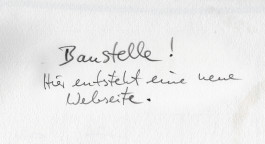 Baustelle!
Hier entsteht eine neue
Webseite.